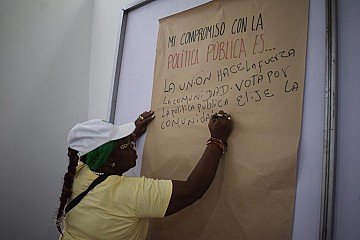 MI COMPROMISO CON LA
POLÍTICA PÚBLICA ES...
LA UNIÓN HACE LA FUERZA
LA COMUNIDAD. VOTA POR
LA POLITICA PUBLICA ELIJE LA
COMUNIDAD